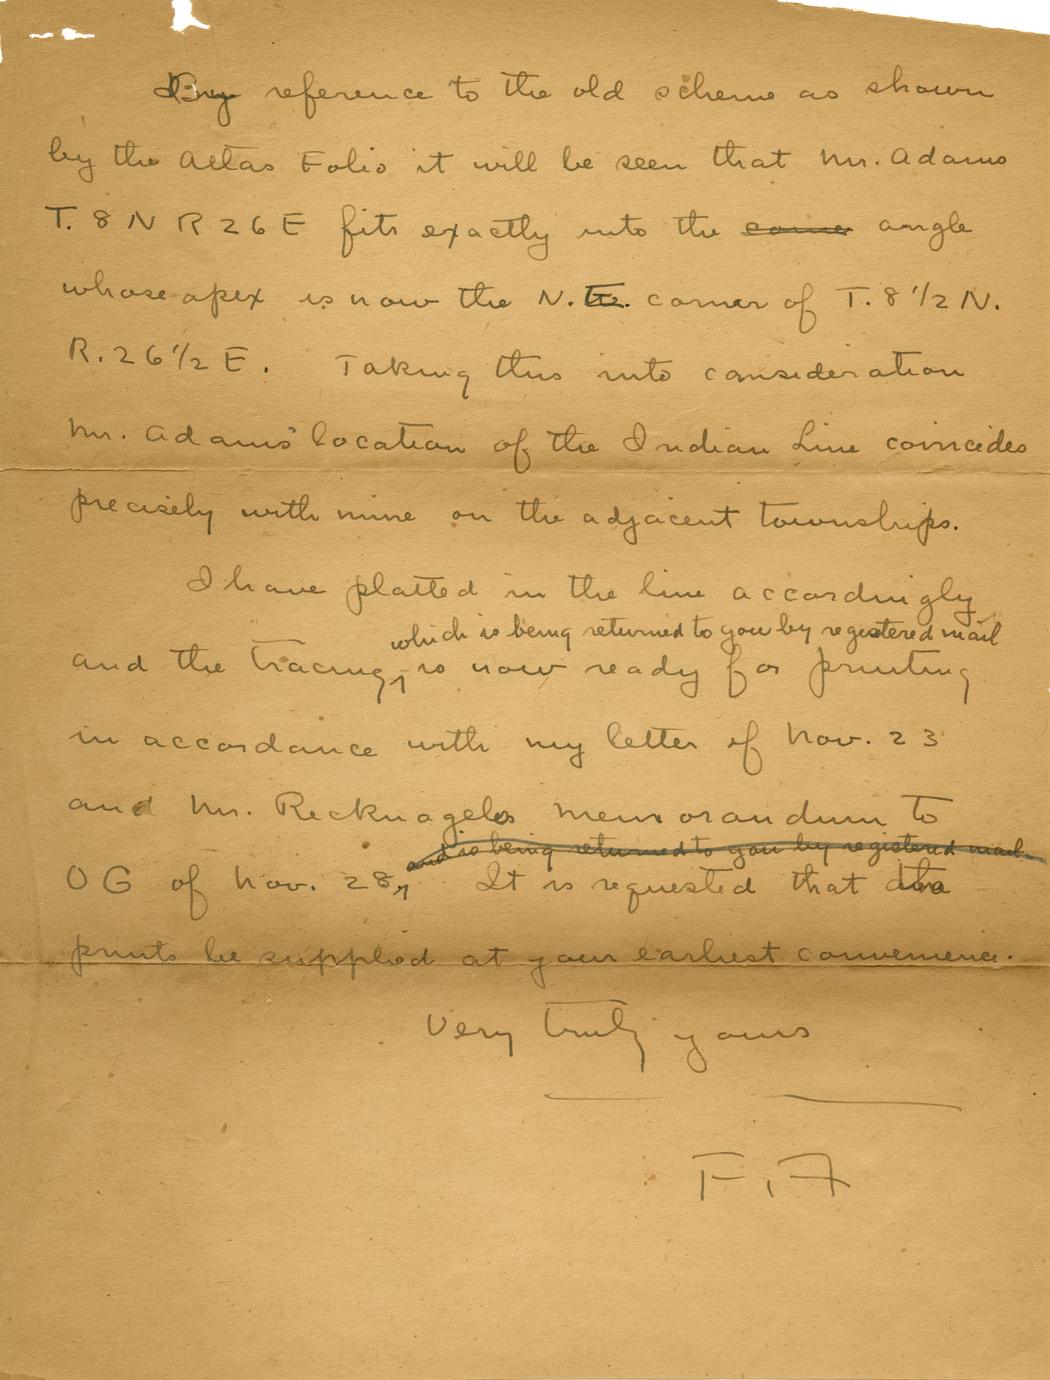 By reference to the old scheme as shown
by the Atlas Folio it will be seen that Mr. Adams
T. 8 N R 26 E fits exactly into the corner angle
whose apex is now the N. E. corner of T. 8 1/2 N.
R. 26 1/2 E. Taking this into consideration
Mr. Adams' location of the Indian Line coincides
precisely with mine on the adjacent townships.
I have platted in the line accordingly
which is being returned to you by registered mail
and the tracing, is now ready for printing
in accordance with my letter of Nov. 23
and Mr. Recknagels memorandum to
and is being returned to you by registered mail.
OG of Nov. 28, It is requested that
prints be supplied at your earliest convenience.
Very truly yours
F. A